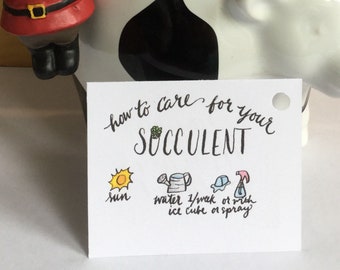 how to care for your
SUCCULENT
sun
water 1/week or with
ice cube or spray